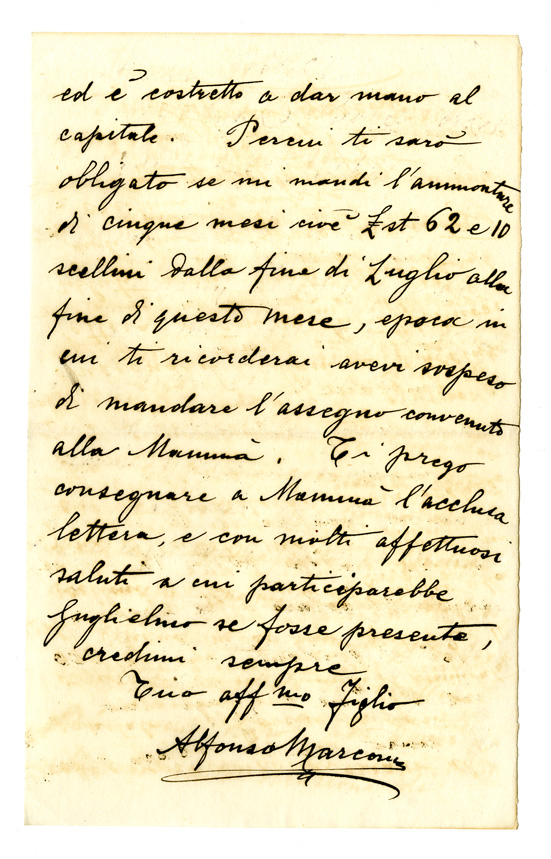 ed è costretto a dar mano al
capitale. Percui ti sarò
obligato se mi mandi l'ammontare
di cinque mesi cioè £st 62 e 10
scellini dalla fine di Luglio alla
fine di questo mese, epoca in
cui ti ricorderai avevi sospeso
di mandare l'assegno convenuto
alla Mammà. Ti prego
consegnare a Mammà l'acclusa
lettera, e con molti affettuosi
saluti a cui participarebbe
Guglielmo se fosse presente,
credimi sempre
Tuo affmo Figlio
Alfonso Marconi